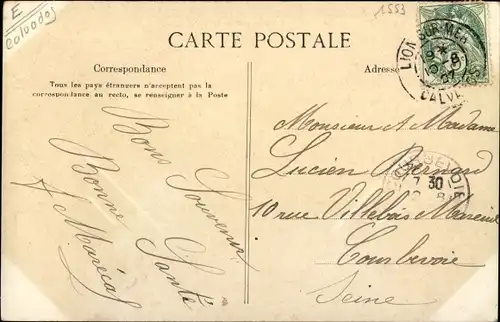 E
Calvados
1553
CARTE POSTALE
Correspondance
Tous les pays étrangers n'acceptent pas la
correspondance au recto, se renseigner à la Poste
Bons Souvenirs
Bonne Santé
Adresse
LION-SUR-MER
CALVADOS
Monsieur & Madame
Lucien Bernard
COURBEVOIE
7 30
10 rue Villebois Mareuil
Courbevoie
Seine